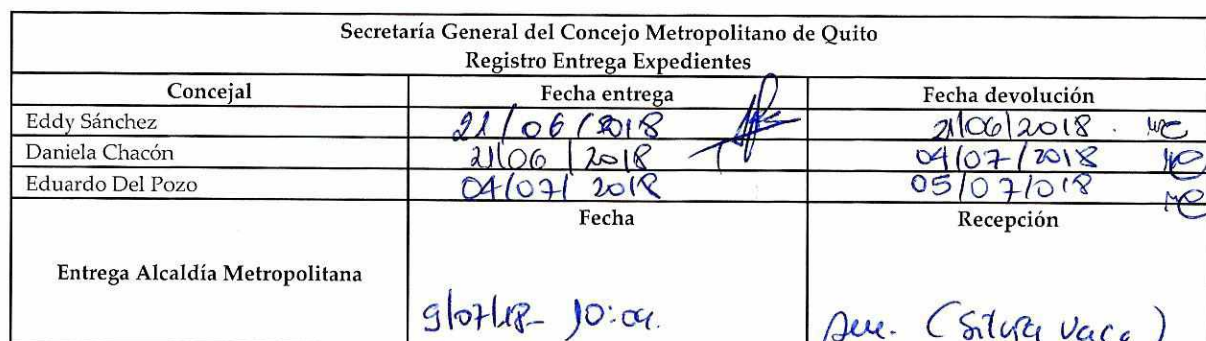 Secretaría General del Concejo Metropolitano de Quito
Registro Entrega Expedientes
Concejal Fecha entrega Fecha devolución
Eddy Sánchez 21/06/2018 21/06/2018.
Daniela Chacón 21/06/2018 04/07/2018
Eduardo Del Pozo 04/07/2018 05/07/018
Fecha Recepción
Entrega Alcaldía Metropolitana
9/07/18- 10:04. (Silvia Vaca)